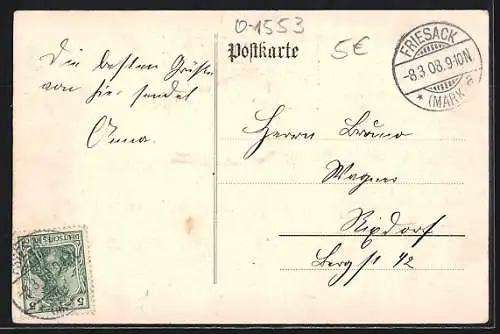 0-1553
Postkarte
5€
FRIESACK
-8.3.08.9-10N
* (MARK) a
Die besten Grüße
von hier sendet
Anna.
Herrn Bruno
Wagner
Rixdorf
Bergst 42
DEUTSCHES REICH
5 5